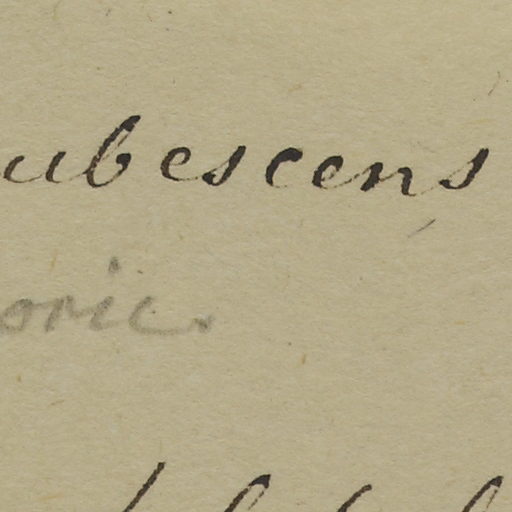 ubescens
oric.